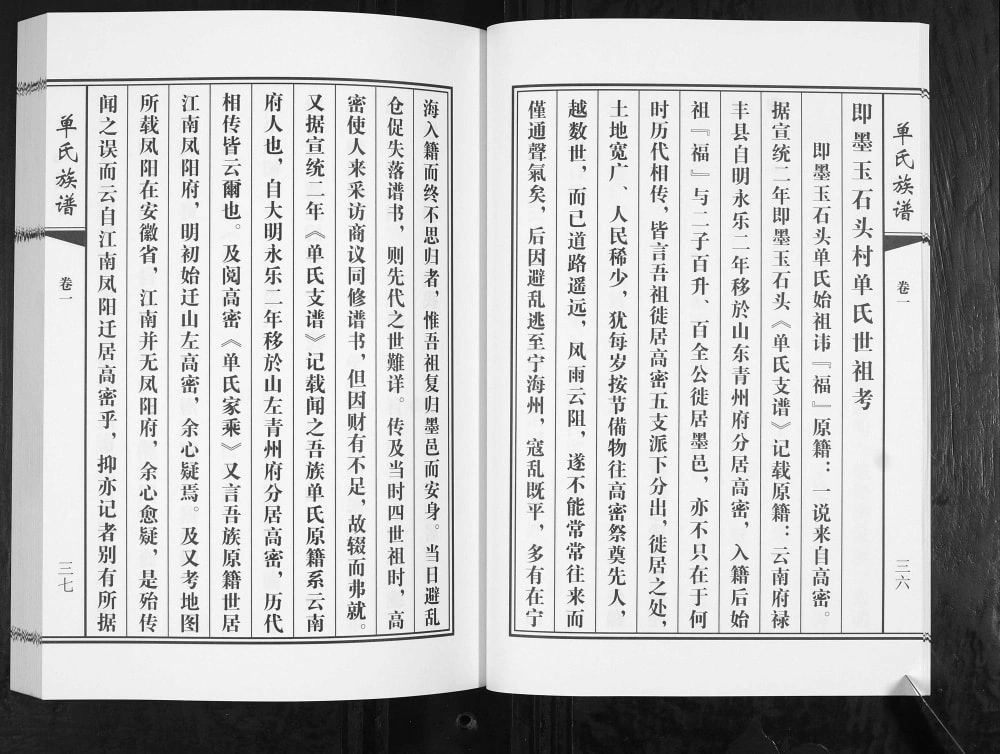 单氏族谱
卷一
三六
即墨玉石头村单氏世祖考
即墨玉石头单氏始祖讳『福』原籍：一说来自高密。
据宣统二年即墨玉石头《单氏支谱》记载原籍：云南府禄
丰县自明永乐二年移於山东青州府分居高密，入籍后始
祖『福』与二子百升、百全公徙居墨邑，亦不只在于何
时历代相传，皆言吾祖徙居高密五支派下分出，徙居之处，
土地宽广、人民稀少，犹每岁按节備物往高密祭奠先人，
越数世，而已道路遥远，风雨云阻，遂不能常常往来而
僅通聲氣矣，后因避乱逃至宁海州，寇乱既平，多有在宁
海入籍而终不思归者，惟吾祖复归墨邑而安身。当日避乱
仓促失落谱书，则先代之世難详。传及当时四世祖时，高
密使人来采访商议同修谱书，但因财有不足，故辍而弗就。
又据宣统二年《单氏支谱》记载闻之吾族单氏原籍系云南
府人也，自大明永乐二年移於山左青州府分居高密，历代
相传皆云爾也。及阅高密《单氏家乘》又言吾族原籍世居
江南凤阳府，明初始迁山左高密，余心疑焉。及又考地图
所载凤阳在安徽省，江南并无凤阳府，余心愈疑，是殆传
闻之误而云自江南凤阳迁居高密乎，抑亦记者别有所据
单氏族谱
卷一
三七